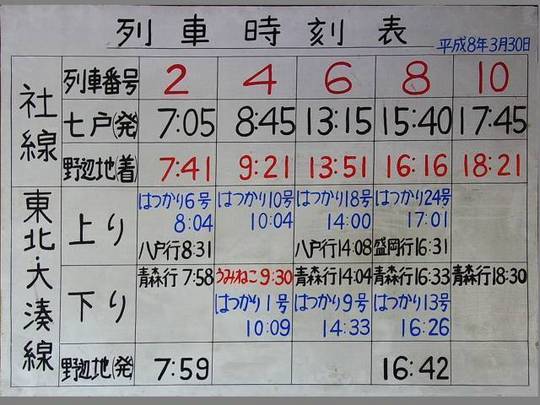 列車時刻表
平成8年3月30日
社線 列車番号 2 4 6 8 10
七戸(発) 7:05 8:45 13:15 15:40 17:45
野辺地(着) 7:41 9:21 13:51 16:16 18:21
東北・大湊線 上り はつかり6号 はつかり10号 はつかり18号 はつかり24号
8:04 10:04 14:00 17:01
八戸行8:31 八戸行14:08 盛岡行16:31
下り 青森行7:58 うみねこ9:30 青森行14:04 青森行16:33 青森行18:30
はつかり1号 はつかり9号 はつかり13号
10:09 14:33 16:26
野辺地(発) 7:59 16:42